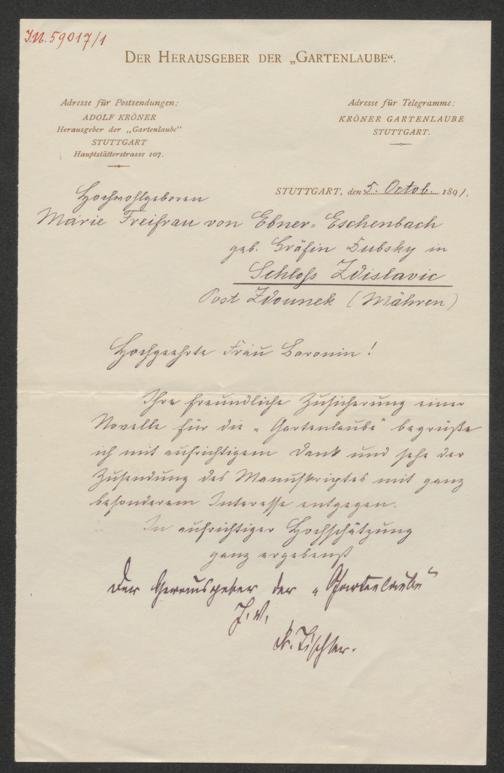 I.N. 59017/1
DER HERAUSGEBER DER „GARTENLAUBE“.
Adresse für Postsendungen:
ADOLF KRÖNER
Herausgeber der „Gartenlaube“
STUTTGART
Hauptstätterstrasse 107.
Adresse für Telegramme:
KRÖNER GARTENLAUBE
STUTTGART.
STUTTGART, den 5. Octob. 1891.
Hochwohlgeboren
Marie Freifrau von Ebner-Eschenbach
geb. Gräfin Dubsky in
Schloss Zdislavic
Post Zdounek (Mähren)
Hochgeehrte Frau Baronin!
Ihre freundliche Zusicherung einer
Novelle für die „Gartenlaube“ begrüße
ich mit aufrichtigem Dank und sehe der
Zusendung des Manuskriptes mit ganz
besonderem Interesse entgegen.
In aufrichtiger Hochschätzung
ganz ergebenst
Der Herausgeber der „Gartenlaube“
J. V.
Dr. Tischler.